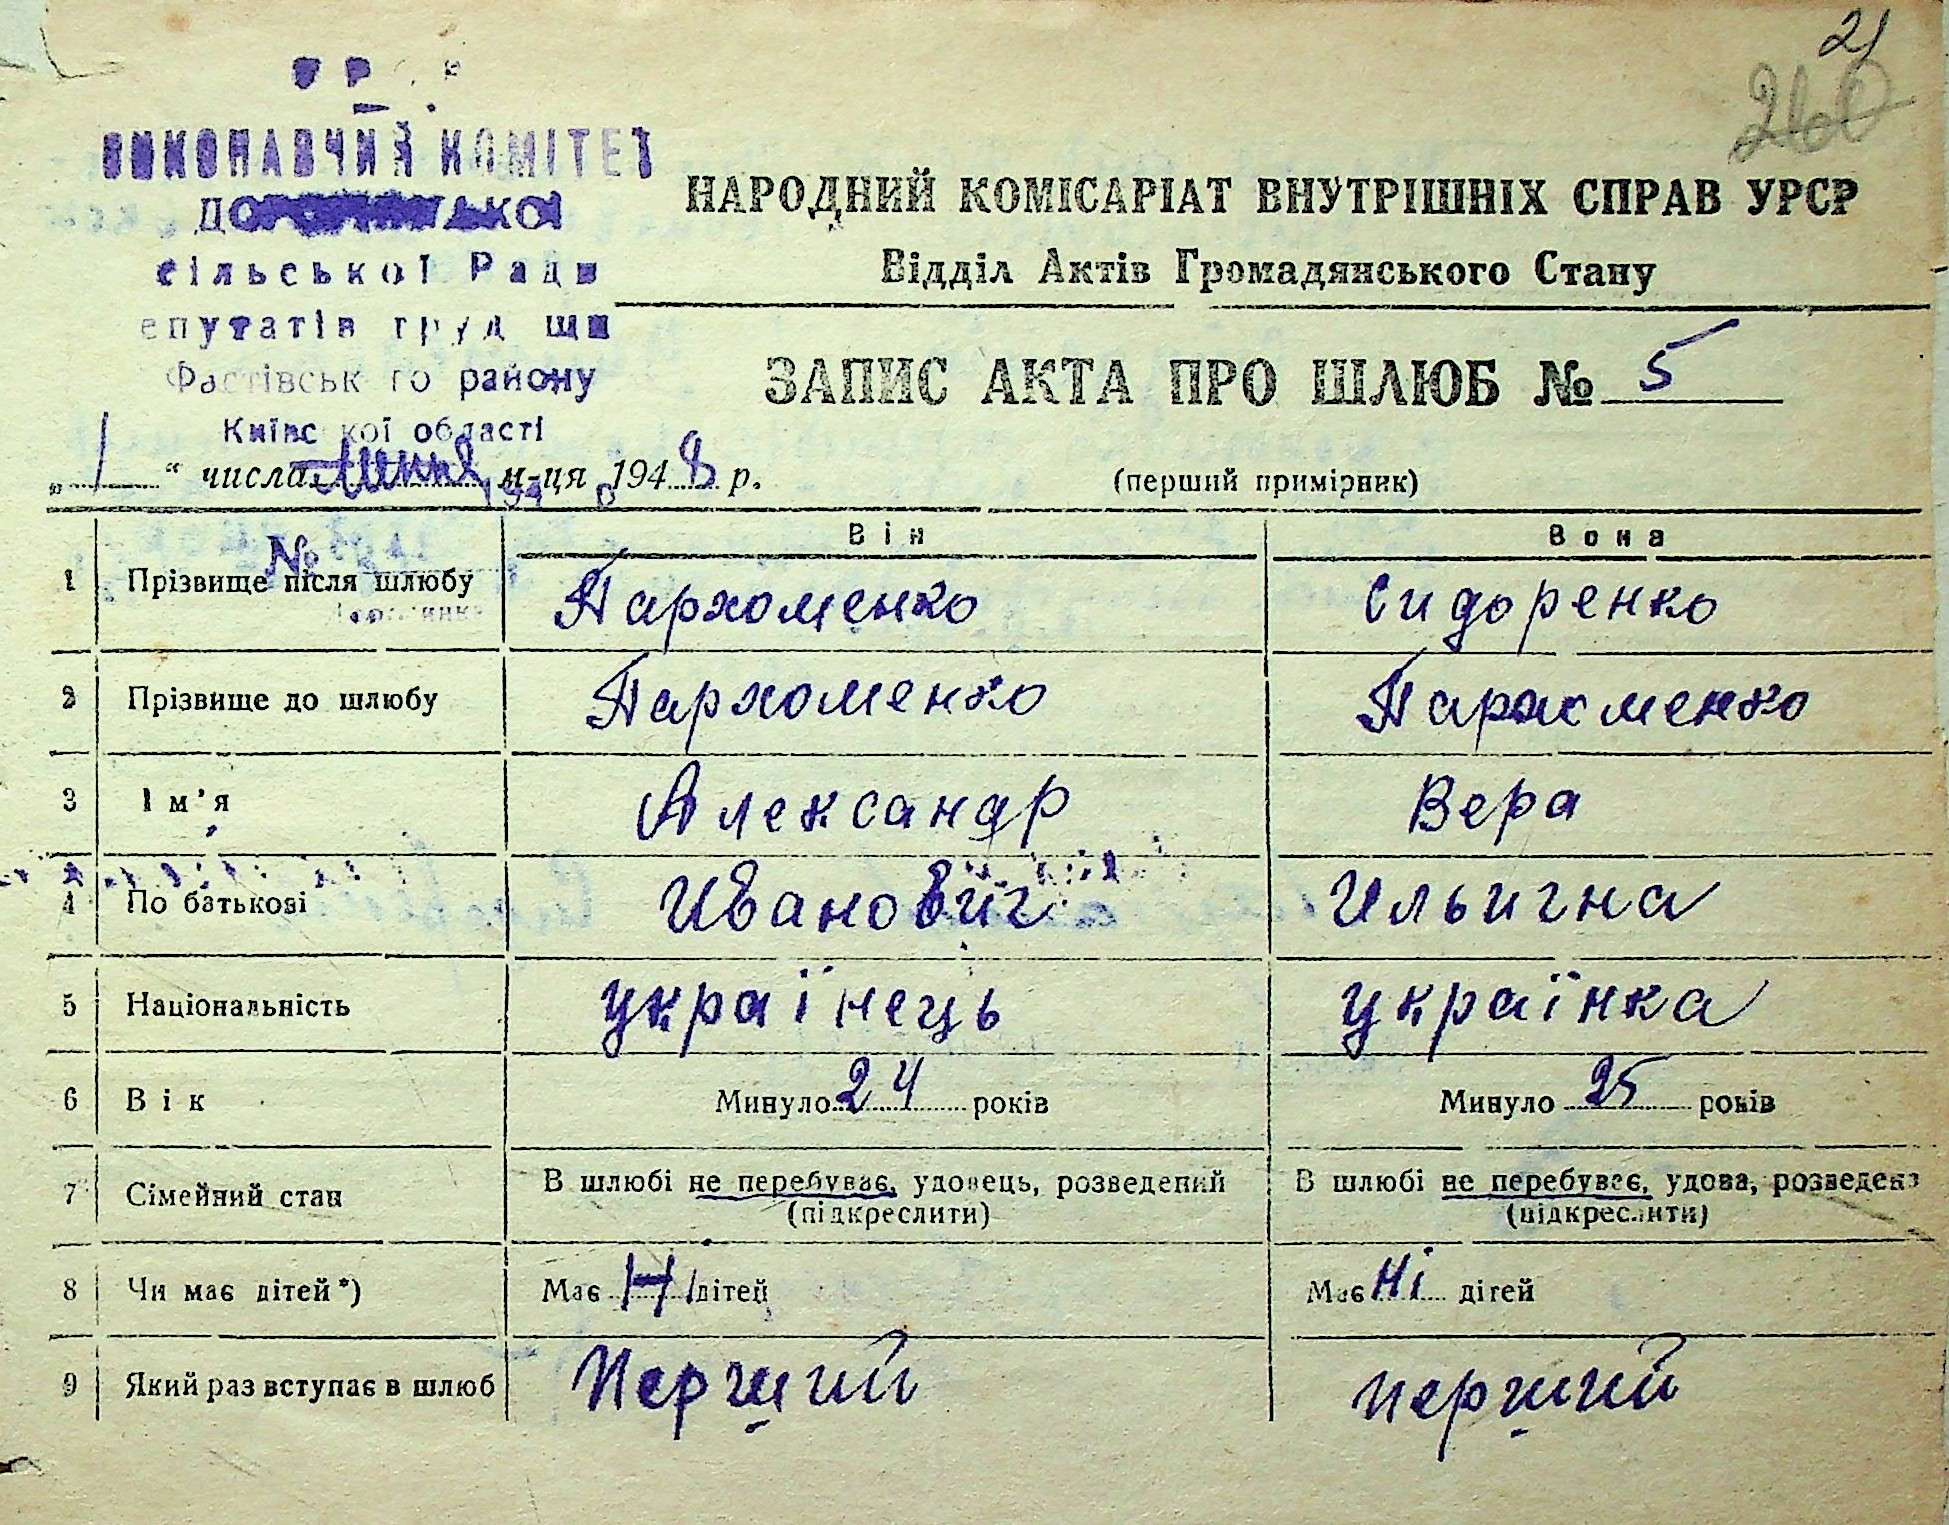 21
260
УРСР
ВИКОНАВЧИЙ КОМІТЕТ
сільської Ради
епутатів труд щи
Фастівськ го району
Київс кої області
НАРОДНИЙ КОМІСАРІАТ ВНУТРІШНІХ СПРАВ УРСР
Відділ Актів Громадянського Стану
ЗАПИС АКТА ПРО ШЛЮБ № 5
„ 1 “ числа м-ця 1948 р.
(перший примірник)
№
Він Вона
1 Прізвище після шлюбу Пархоменко Сидоренко
2 Прізвище до шлюбу Пархоменко Пархоменко
3 Ім’я Александр Вера
4 По батькові Иванович Ильична
5 Національність українець українка
6 Вік Минуло 24 років Минуло 25 років
7 Сімейний стан В шлюбі не перебуває, удовець, розведений В шлюбі не перебуває, удова, розведена
(підкреслити) (підкреслити)
8 Чи має дітей*) Має Ні дітей Має Ні дітей
9 Який раз вступає в шлюб Перший перший